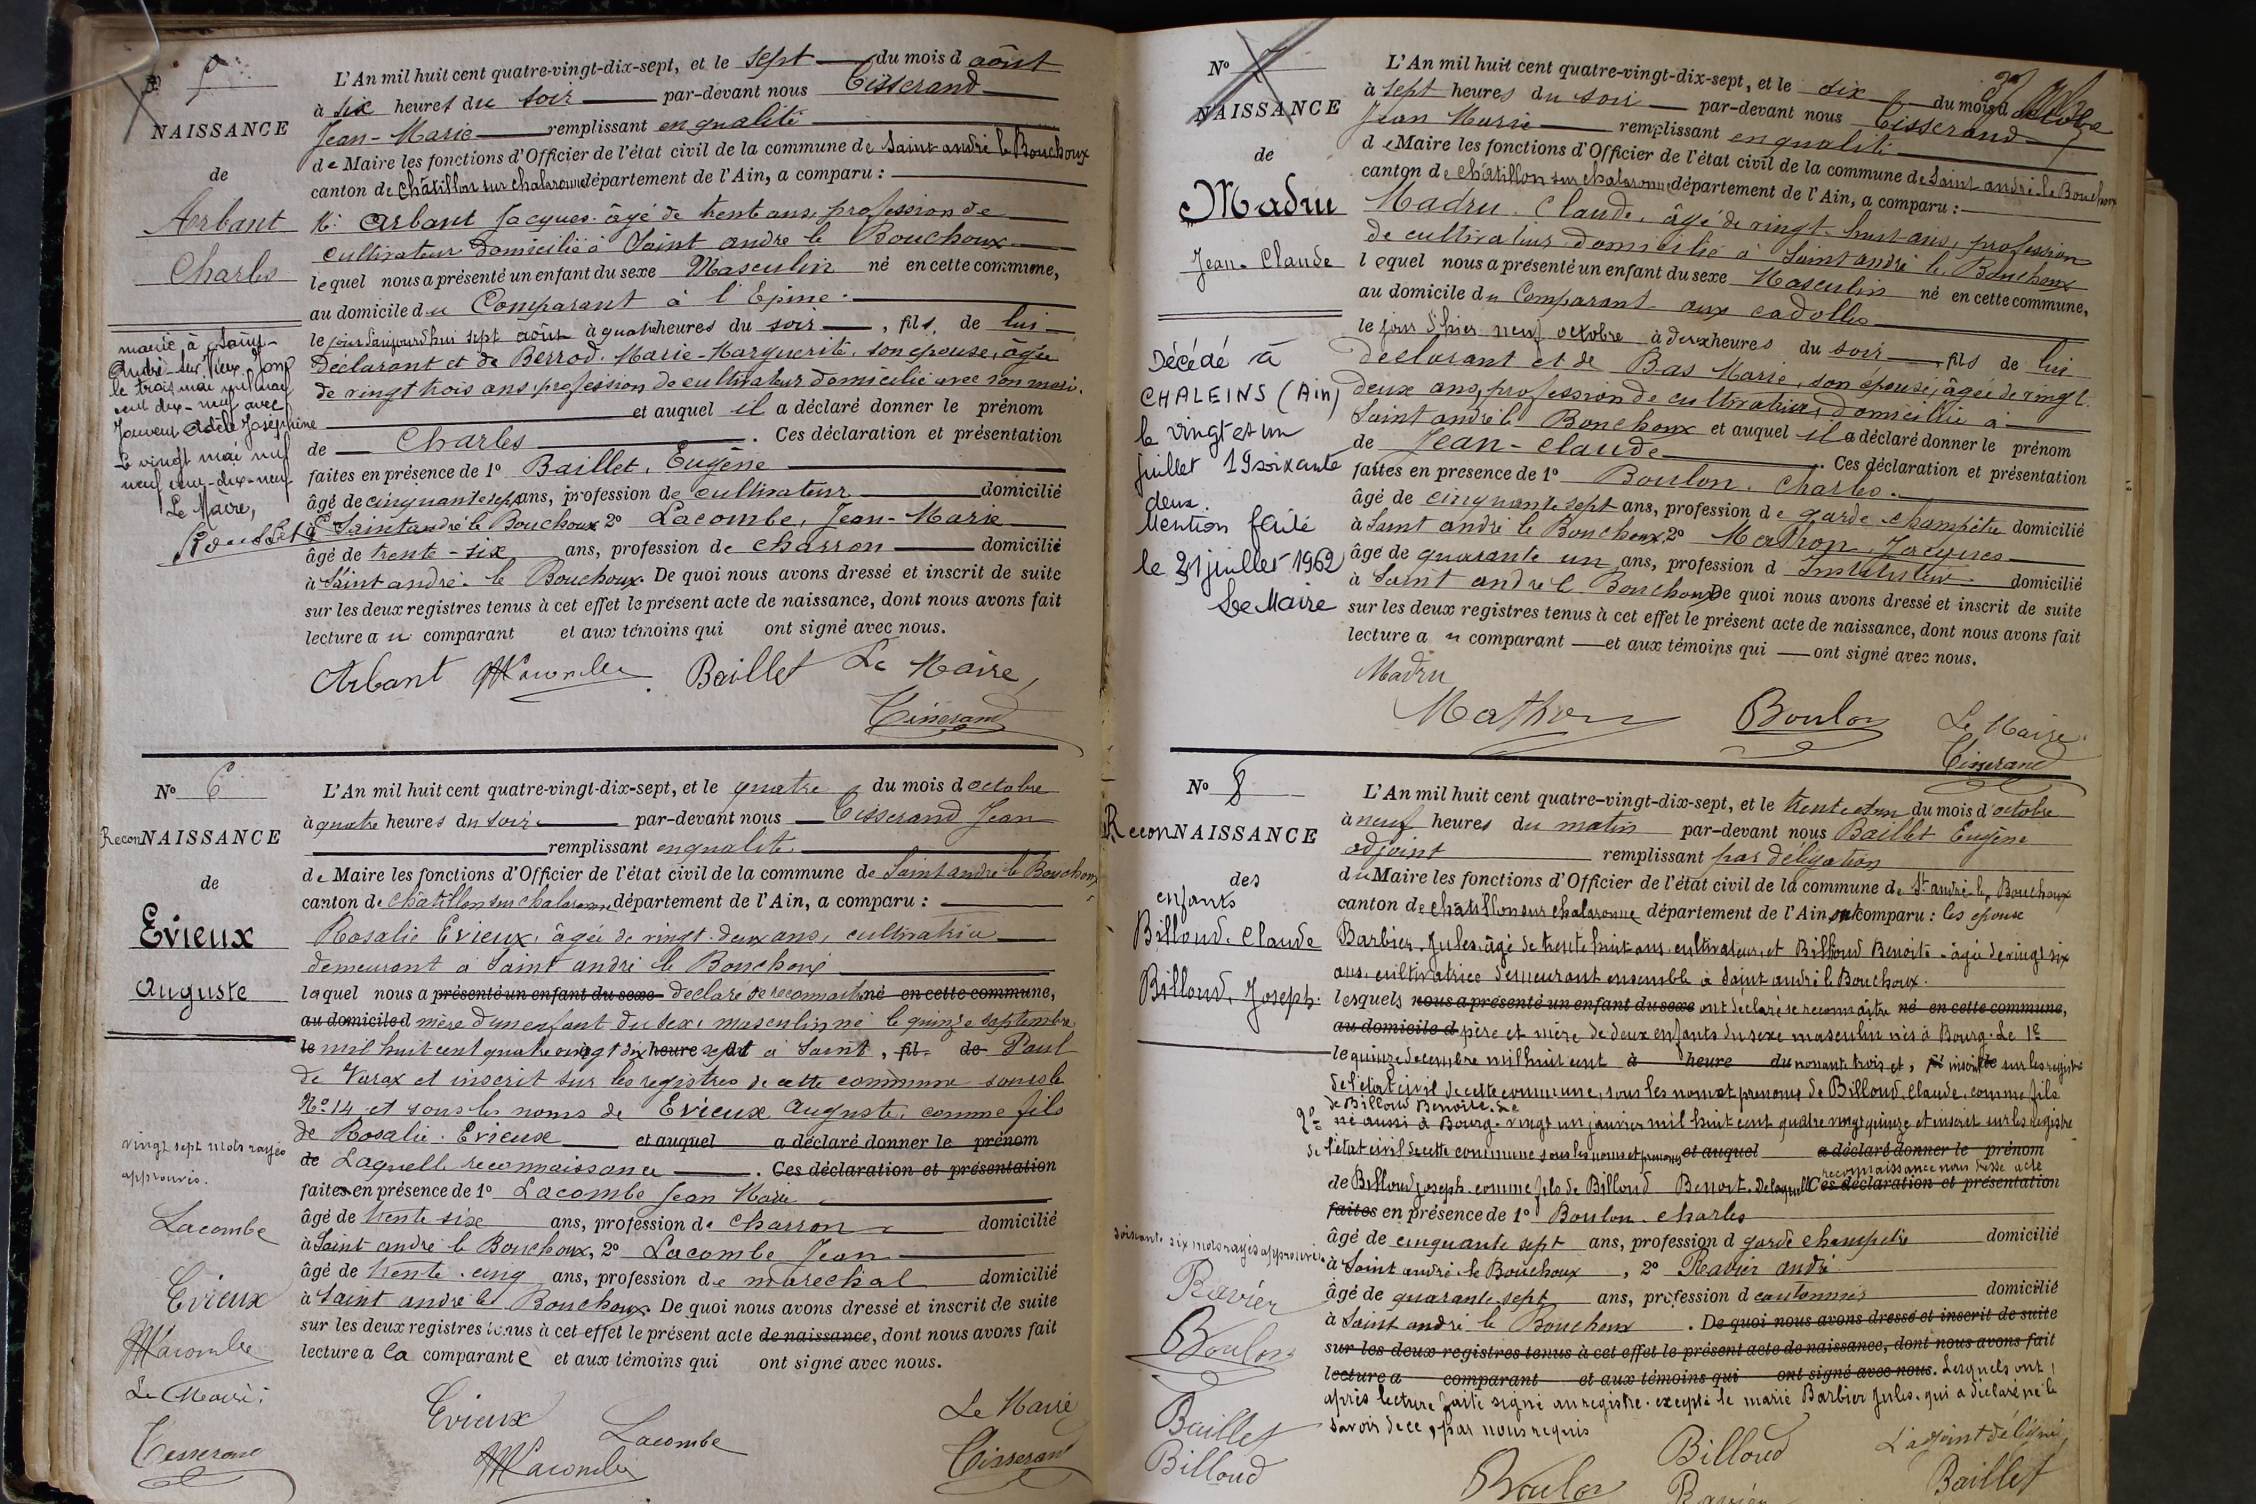 NAISSANCE
de
Arbant
Charles
mariée à Saint-
André sur Vieux Jonc
le trois mai mil neuf
cent dix-neuf avec
Jouvent Adèle Joséphine
Le vingt mai mil
neuf cent-dix-neuf
Le Maire,
L'An mil huit cent quatre-vingt-dix-sept, et le sept du mois d août
à six heures du soir par-devant nous Tisserand
Jean-Marie remplissant en qualité
de Maire les fonctions d'Officier de l'état civil de la commune de Saint-andré le Bouchoux
canton de Châtillon sur chalaronne département de l'Ain, a comparu :
M. Arbant Jacques âgé de trente ans, profession de
cultivateur domicilié à Saint andre le Bouchoux
lequel nous a présenté un enfant du sexe Masculin né en cette commune,
au domicile du Comparant à l'Epine
le jour d'aujourd'hui sept août à quatre heures du soir, fils de lui
Déclarant et de Berrod. Marie-Marguerite, son épouse, âgée
de vingt trois ans, profession de cultivateur domicilié avec son mari.
et auquel il a déclaré donner le prénom
de Charles. Ces déclaration et présentation
faites en présence de 1° Baillet, Eugène
âgé de cinquante sept ans, profession de cultivateur domicilié
à Saint andré le Bouchoux 2° Lacombe, Jean-Marie
âgé de trente-six ans, profession de charron domicilié
à Saint andré le Bouchoux. De quoi nous avons dressé et inscrit de suite
sur les deux registres tenus à cet effet le présent acte de naissance, dont nous avons fait
lecture au comparant et aux témoins qui ont signé avec nous.
Arbant Lacombe Baillet Le Maire,
Tisserand
N° 6
ReconNAISSANCE
de
Evieux
Auguste
vingt sept mots rayés
approuvés.
Lacombe
Evieux
Lacombe
Le Maire.
Tisserand
L'An mil huit cent quatre-vingt-dix-sept, et le quatre du mois d octobre
à quatre heures du soir par-devant nous Tisserand Jean
remplissant en qualité
de Maire les fonctions d'Officier de l'état civil de la commune de Saint andré le Bouchoux
canton de Châtillon sur chalaronne département de l'Ain, a comparu :
Rosalie Evieux, âgée de vingt-deux ans, cultivatrice
demeurant à Saint andré le Bouchoux
laquel nous a présenté un enfant du sexe déclaré se reconnaître né en cette commune,
au domicile d mère d'un enfant du sexe masculin né le quinze septembre
le mil huit cent quatre vingt dix heure sept à Saint, fil de Paul
de Varax et inscrit sur les registres de cette commune sous le
N° 14 et sous les noms de Evieux Auguste, comme fils
de Rosalie Evieux et auquel a déclaré donner le prénom
de Laquelle reconnaissance. Ces déclaration et présentation
faites en présence de 1° Lacombe Jean Marie
âgé de trente six ans, profession de charron domicilié
à Saint andré le Bouchoux, 2° Lacombe Jean
âgé de trente-cinq ans, profession de maréchal domicilié
à Saint andré le Bouchoux. De quoi nous avons dressé et inscrit de suite
sur les deux registres tenus à cet effet le présent acte de naissance, dont nous avons fait
lecture a la comparante et aux témoins qui ont signé avec nous.
Evieux Lacombe Le Maire
Lacombe Tisserand
N° 7
NAISSANCE
de
Madru
Jean-Claude
Décédé à
CHALEINS (Ain)
le vingt et un
juillet 19soixante
deux.
Mention faite
le 31 juillet 1962
Le Maire
L'An mil huit cent quatre-vingt-dix-sept, et le dix du mois d octobre
à sept heures du soir par-devant nous Tisserand
Jean Marie remplissant en qualité
de Maire les fonctions d'Officier de l'état civil de la commune de Saint andré-le Bouchoux
canton de châtillon sur chalaronne département de l'Ain, a comparu :
Madru. Claude, âgé de vingt-huit ans, profession
de cultivateur domicilié à Saint andré le Bouchoux
lequel nous a présenté un enfant du sexe Masculin né en cette commune,
au domicile du Comparant aux cadolles
le jour d'hier neuf octobre à deux heures du soir, fils de lui
déclarant et de Bas Marie, son épouse, âgée de vingt-
deux ans, profession de cultivatrice, domiciliée à
Saint andré le Bouchoux et auquel il a déclaré donner le prénom
de Jean-Claude. Ces déclaration et présentation
faites en presence de 1° Boulon. Charles.
âgé de cinquante sept ans, profession de garde champêtre domicilié
à Saint andré le Bouchoux, 2° Mathon Jacques
âgé de quarante un ans, profession d Instituteur domicilié
à Saint andré le Bouchoux De quoi nous avons dressé et inscrit de suite
sur les deux registres tenus à cet effet le présent acte de naissance, dont nous avons fait
lecture au comparant et aux témoins qui ont signé avec nous.
Madru
Mathon Boulon Le Maire.
Tisserand
N° 8
ReconNAISSANCE
des
enfants
Billoud. Claude
Billoud, Joseph.
soixante six mots rayés approuvés.
Ravier
Boulon
Baillet
Billoud
L'An mil huit cent quatre-vingt-dix-sept, et le trente et un du mois d'octobre
à neuf heures du matin par-devant nous Baillet Eugène
adjoint remplissant par délégation
du Maire les fonctions d'Officier de l'état civil de la commune de St andré-le Bouchoux
canton de châtillon sur chalaronne département de l'Ain, ont comparu : les époux
Barbier. Jules. âgé de trente huit ans, cultivateur, et Billoud Benoite - âgée de vingt six
ans, cultivatrice demeurant ensemble à Saint andré le Bouchoux.
lesquels nous a présenté un enfant du sexe ont déclaré se reconnaître né en cette commune,
au domicile d père et mère de deux enfants du sexe masculin nés à Bourg. Le 1er
le quinze decembre mil huit cent à heure du nonante trois et, fil inscrit de sur les registres
de l'état civil de cette commune, sous les noms et prenoms de Billoud. Claude, comme fils
de Billoud Benoite. Le
2° né aussi à Bourg. vingt un janvier mil huit cent quatre vingt quinze et inscrit sur les registre
de l'état civil de cette commune sous les noms et prenoms et auquel a déclaré donner le prénom
reconnaissance nous dresse acte
de Billoud joseph. comme fils de Billoud Benoit. De laquelle Ces déclaration et présentation
faites en présence de 1° Boulon. charles
âgé de cinquante sept ans, profession d garde champêtre domicilié
à Saint andré le Bouchoux, 2° Ravier andré
âgé de quarante sept ans, profession d cantonnier domicilié
à Saint andré le Bouchoux. De quoi nous avons dressé et inscrit de suite
sur les deux registres tenus à cet effet le présent acte de naissance, dont nous avons fait
lecture a comparant et aux témoins qui ont signé avec nous. Lesquels ont
après lecture faite signé au registre. excepté le marié Barbier Jules. qui a déclaré ne le
savoir de ce, par nous requis
Billoud L'adjoint délégué,
Boulon Ravier Baillet